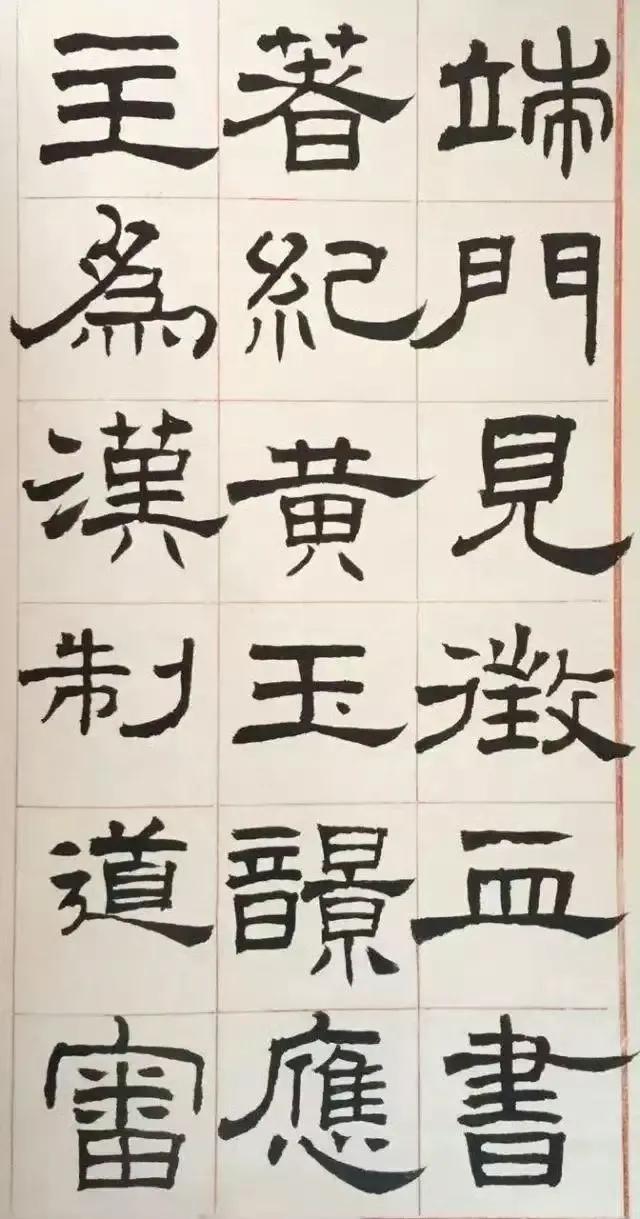 端門見徵血書
著紀黃玉韻應
主為漢制道審